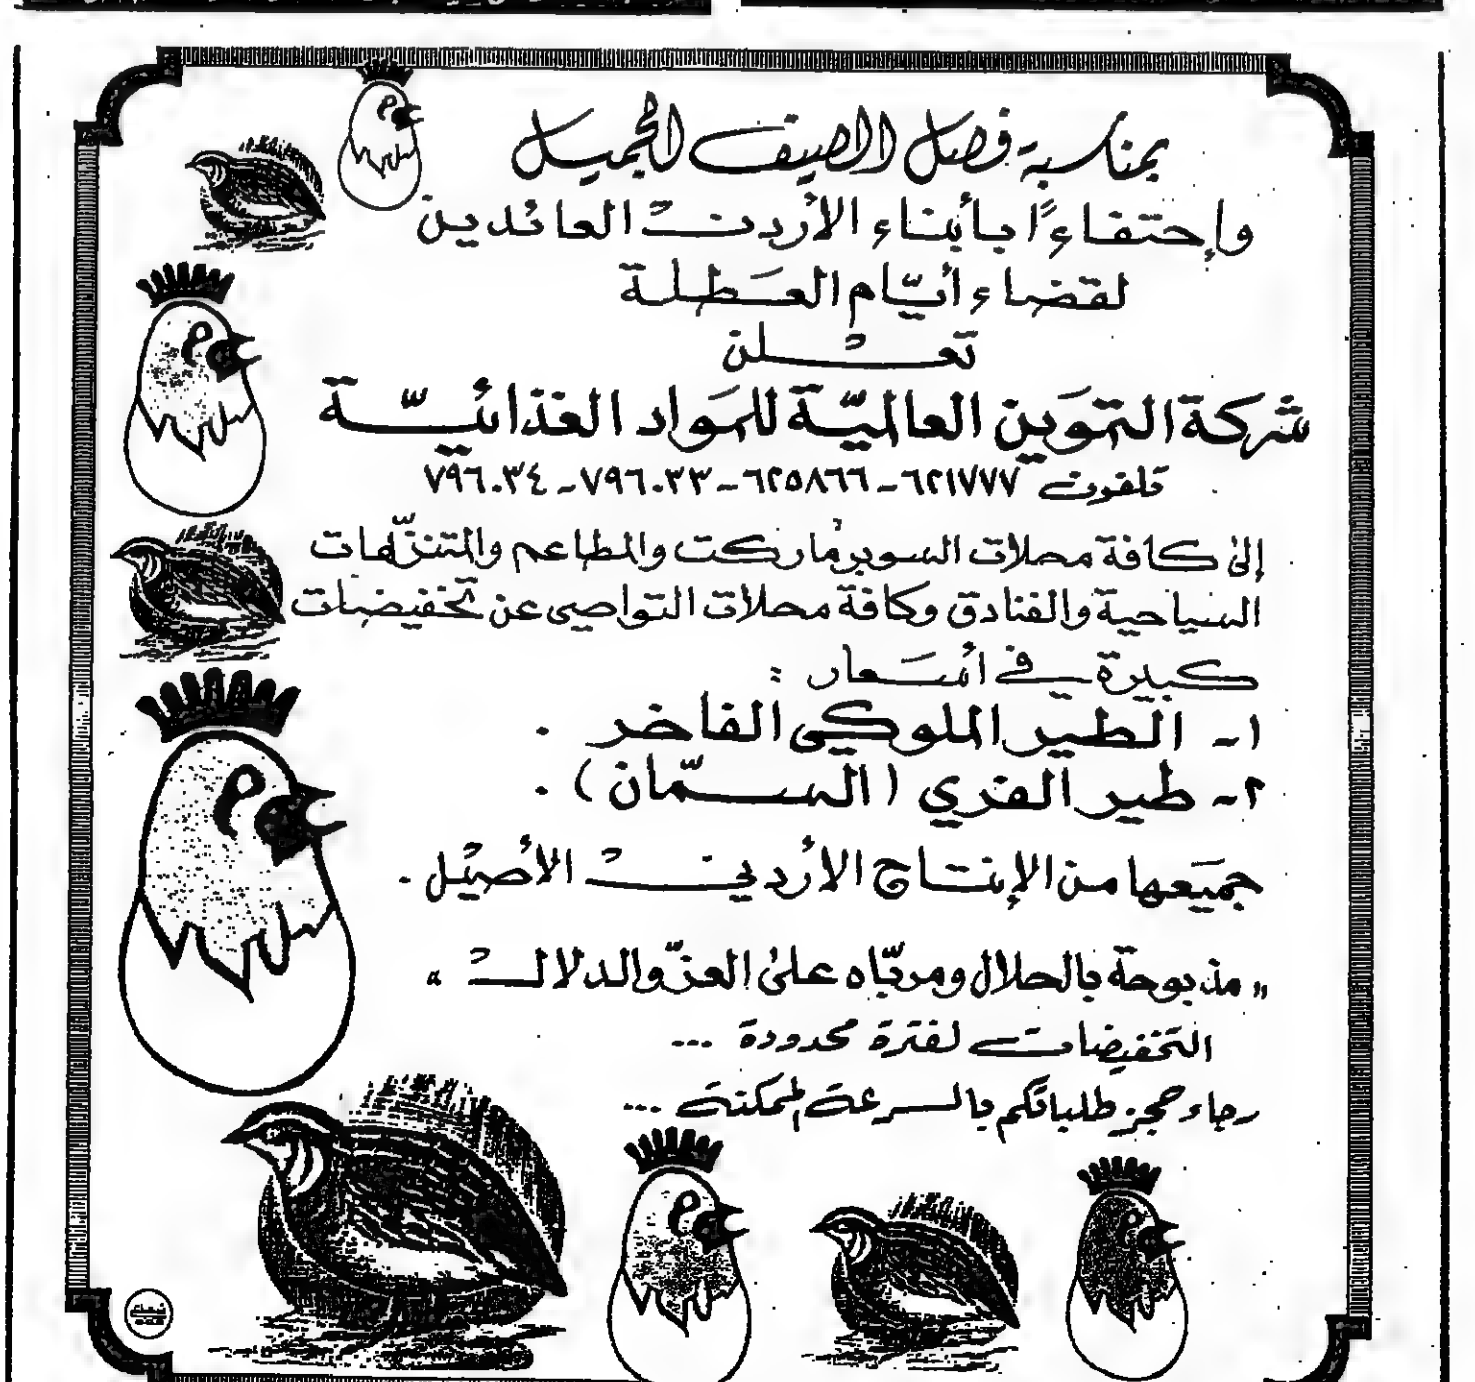 بمناسبة فصل الصيف الجميل
وإحتفاءً بأبناء الأردن العائدين
لقضاء أيّام العَطلة
تعلن
شركة التموَين العالميّة للمَواد الغذائيّة
تلفون ٦٢١٧٧٧ - ٦٢٥٨٦٦ - ٧٩٦٠٣٣ - ٧٩٦٠٣٤
إلى كافة محلات السوبرماركت والمطاعم والمتنزّهات
السياحية والفنادق وكافة محلات النواصي عن تخفيضات
كبيرة في أسَعار :
١- الطير الملوكي الفاخر .
٢- طير الفري (السمّان) .
جميَعها من الإنتاج الأردني الأصيل .
" مذبوحة بالحلال ومربّاه على العزّ والدلال "
التخفيضات لفترة محدودة ...
رجاء حجز طلباتكم بالسرعة الممكنة ...